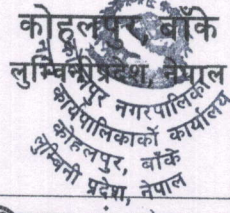 कोहलपुर, बाँके
लुम्बिनी प्रदेश, नेपाल
कोहलपुर नगरपालिका
कार्यपालिकाको कार्यालय
कोहलपुर, बाँके
लुम्बिनी प्रदेश, नेपाल